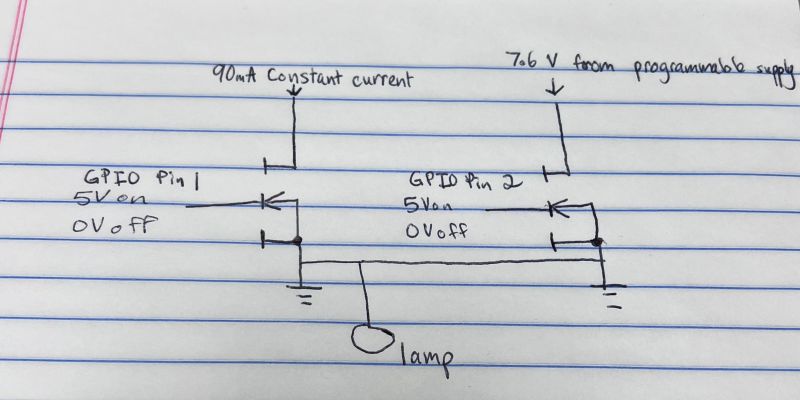 90mA Constant current
7.6 V from programmable supply
GPIO Pin 1
5V on
0V off
GPIO Pin 2
5V on
0V off
lamp